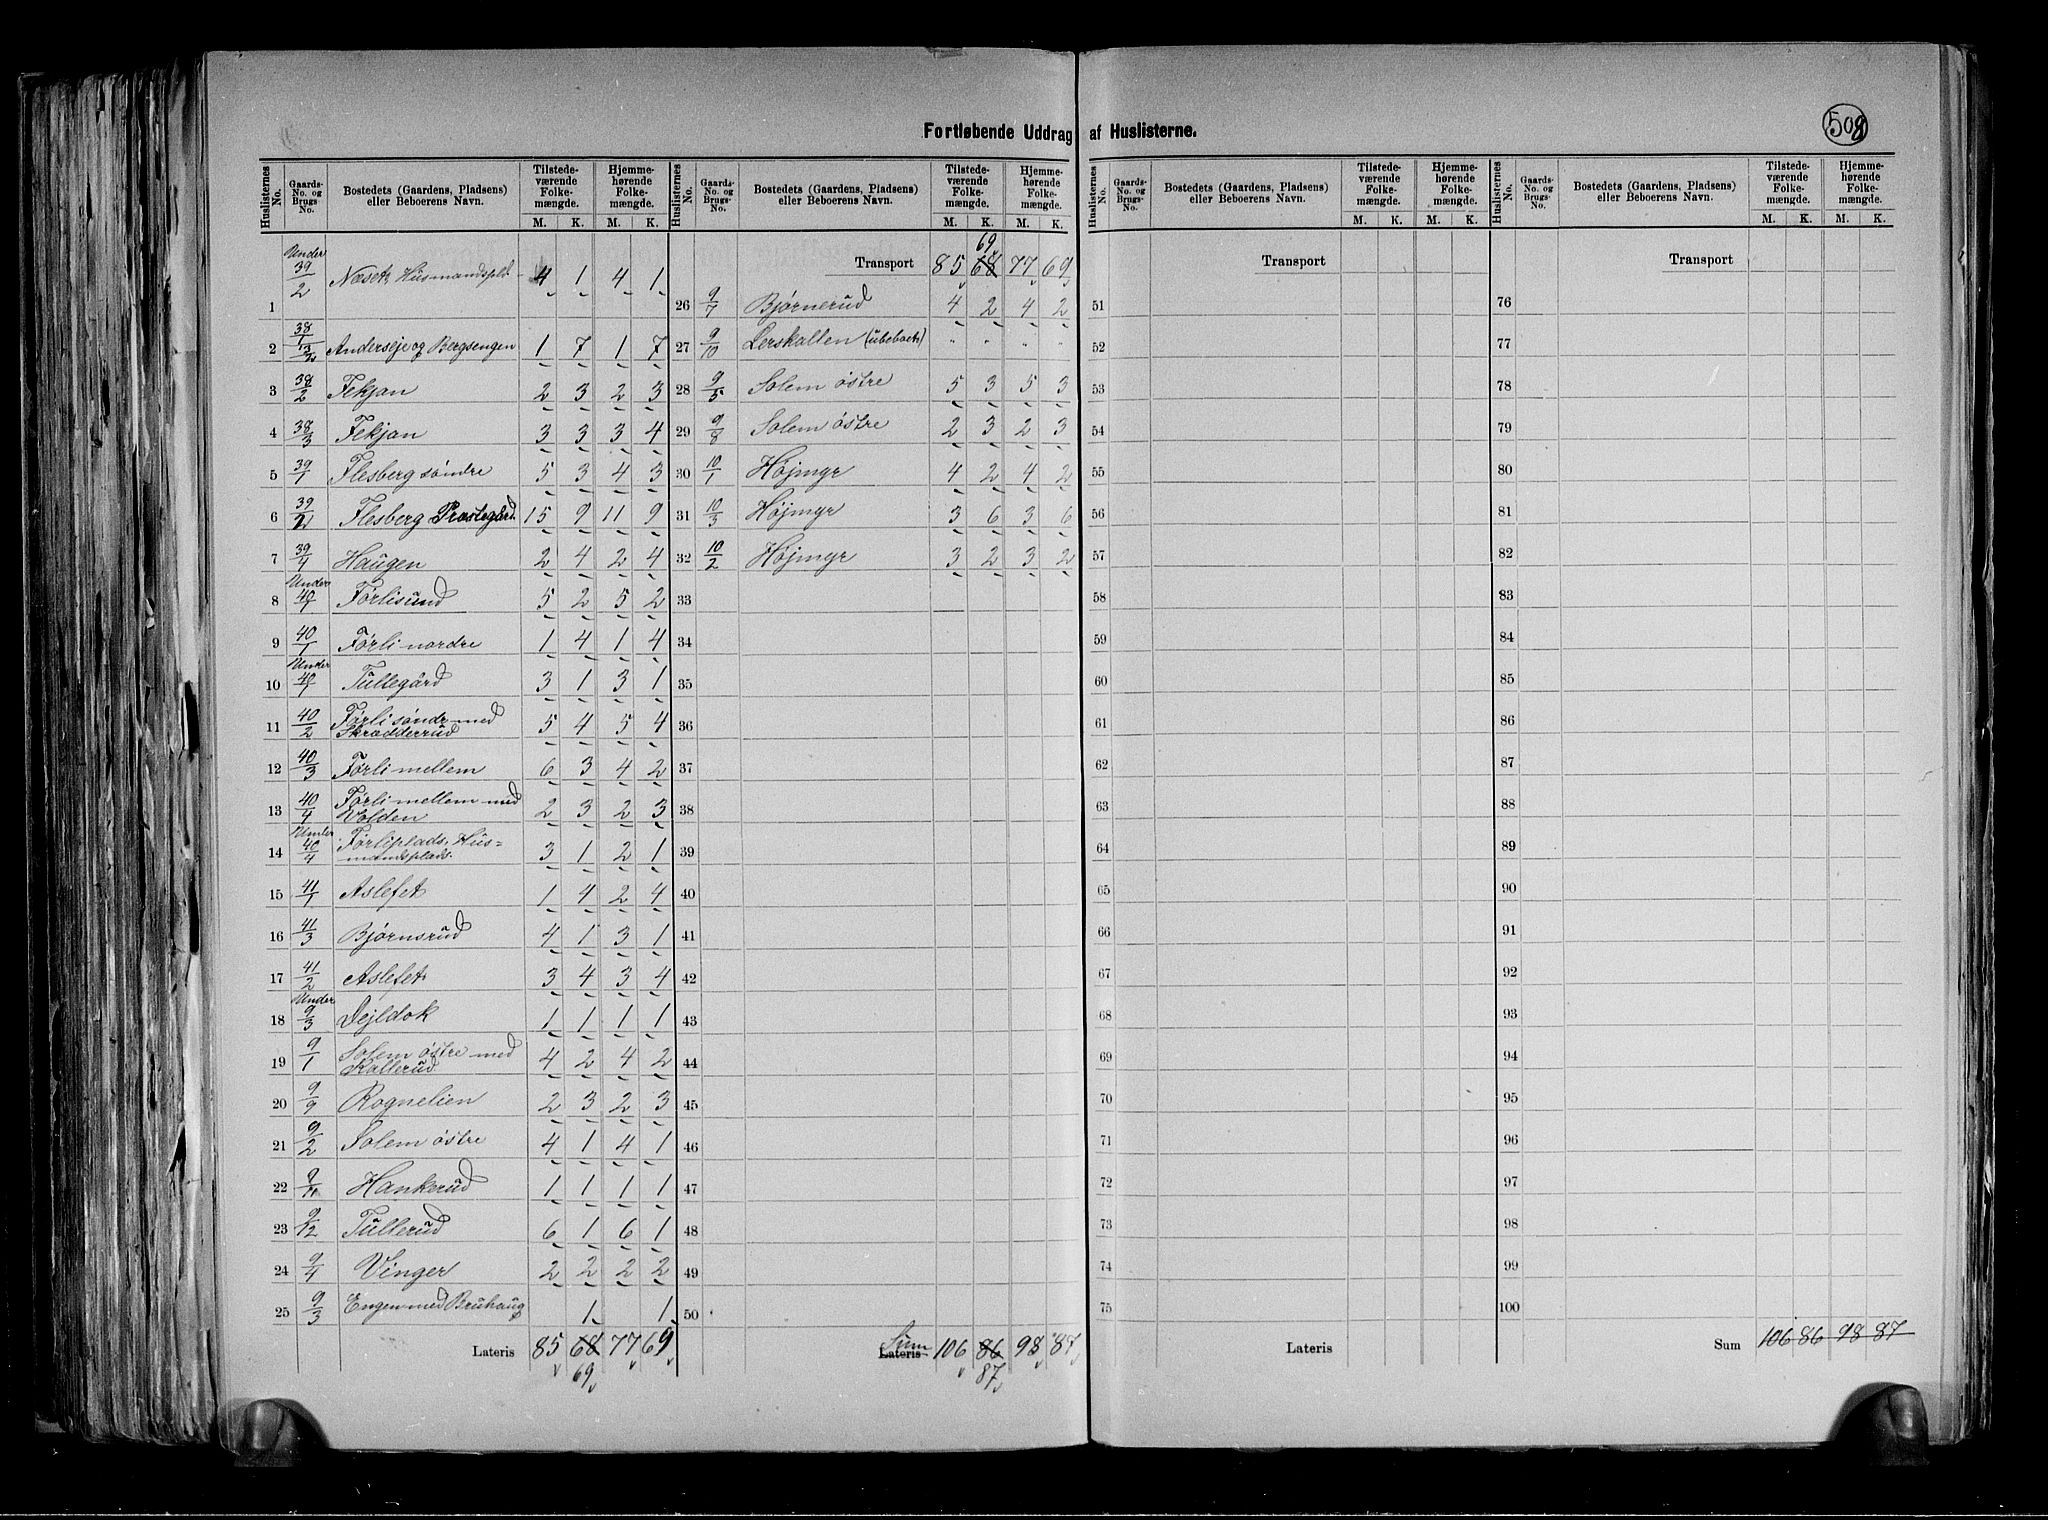 Fortløbende Uddrag af Huslisterne.
508
Huslisternes No. | Gaards-No. og Brugs-No. | Bostedets (Gaardens, Pladsens) eller Beboerens Navn. | Tilstedeværende Folkemængde. M. K. | Hjemmehørende Folkemængde. M. K.
1 Under 39/2 Næset, Husmandspld. 4 1 4 1
2 38/1 Anderseje og Bergsengen 1 7 1 7
3 38/2 Fekjan 2 3 2 3
4 38/3 Fekjan 3 3 3 4
5 39/1 Flesberg søndre 5 3 4 3
6 39/2 Flesberg Præstegård 15 9 11 9
7 39/4 Haugen 2 4 2 4
8 Under 40/1 Førlisund 5 2 5 2
9 40/1 Førli nordre 1 4 1 4
10 Under 40/1 Tullegård 3 1 3 1
11 40/2 Førli søndr med Skrædderrud 5 4 5 4
12 40/3 Førli mellem 6 3 4 2
13 40/4 Førli mellem med Volden 2 3 2 3
14 Under 40/4 Førliplads, Husmandsplads. 3 1 2 1
15 41/1 Aslefet 1 4 2 4
16 41/3 Bjørnsrud 4 1 3 1
17 41/2 Aslefet 3 4 3 4
18 Under 9/3 Dejldok 1 1 1 1
19 9/1 Solem østre med Kallerud 4 2 4 2
20 9/9 Rognelien 2 3 2 3
21 9/2 Solem østre 4 1 4 1
22 9/11 Hankerud 1 1 1 1
23 9/12 Tullerud 6 1 6 1
24 9/4 Vinger 2 2 2 2
25 9/3 Engen med Bruhaug 1 1
Lateris 85 68 77 69
69
Huslisternes No. | Gaards-No. og Brugs-No. | Bostedets (Gaardens, Pladsens) eller Beboerens Navn. | Tilstedeværende Folkemængde. M. K. | Hjemmehørende Folkemængde. M. K.
69
Transport 85 68 77 69
26 9/7 Bjørnerud 4 2 4 2
27 9/10 Lerskallen (ubeboet) " " " "
28 9/5 Solem østre 5 3 5 3
29 9/8 Solem østre 2 3 2 3
30 10/1 Højmyr 4 2 4 2
31 10/3 Højmyr 3 6 3 6
32 10/2 Højmyr 3 2 3 2
33
34
35
36
37
38
39
40
41
42
43
44
45
46
47
48
49
50
Sum
Lateris 106 86 98 87
87
Huslisternes No. | Gaards-No. og Brugs-No. | Bostedets (Gaardens, Pladsens) eller Beboerens Navn. | Tilstedeværende Folkemængde. M. K. | Hjemmehørende Folkemængde. M. K.
Transport
51
52
53
54
55
56
57
58
59
60
61
62
63
64
65
66
67
68
69
70
71
72
73
74
75
Lateris
Huslisternes No. | Gaards-No. og Brugs-No. | Bostedets (Gaardens, Pladsens) eller Beboerens Navn. | Tilstedeværende Folkemængde. M. K. | Hjemmehørende Folkemængde. M. K.
Transport
76
77
78
79
80
81
82
83
84
85
86
87
88
89
90
91
92
93
94
95
96
97
98
99
100
Sum 106 86 98 87